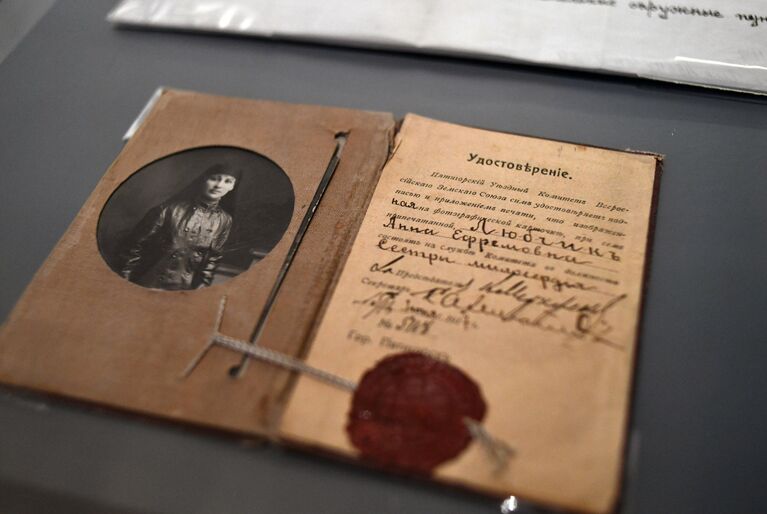 окружные
Удостовѣреніе.
Пятигорскій Уѣздный Комитетъ Всерос-
сійскаго Земскаго Союза симъ удостовѣряетъ под-
писью и приложеніемъ печати, что изображен-
ная на фотографической карточкѣ, при семъ
припечатанной, Любчикъ
Анна Ефремовна
состоитъ на службѣ Комитета въ должности
Сестры милосердія
Предсѣдатель
Секретарь
№
Гор. Пятигорскъ